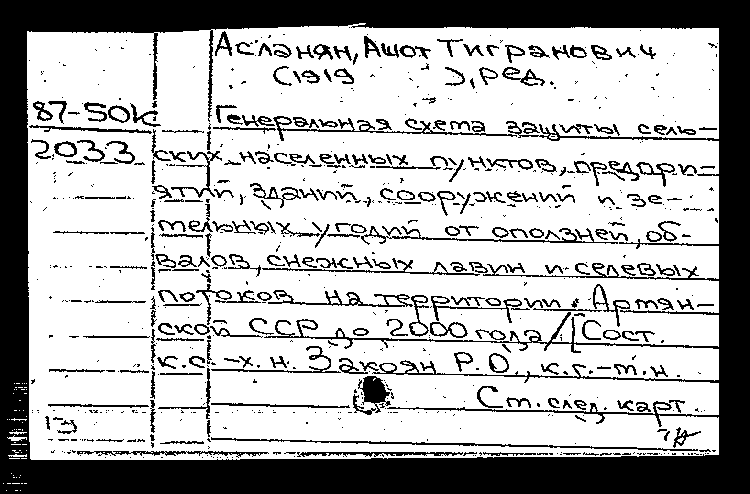 Асланян, Ашот Тигранович
(1919 ), ред.
87-50к Генеральная схема защиты сель-
2033 ских населенных пунктов, предпри-
ятий, зданий, сооружений и зе-
мельных угодий от оползней, об-
валов, снежных лавин и селевых
потоков на территории Армян-
ской ССР до 2000 года/[Сост.
к.с.-х.н. Закоян Р.О., к.г.-м.н.
См. след. карт.